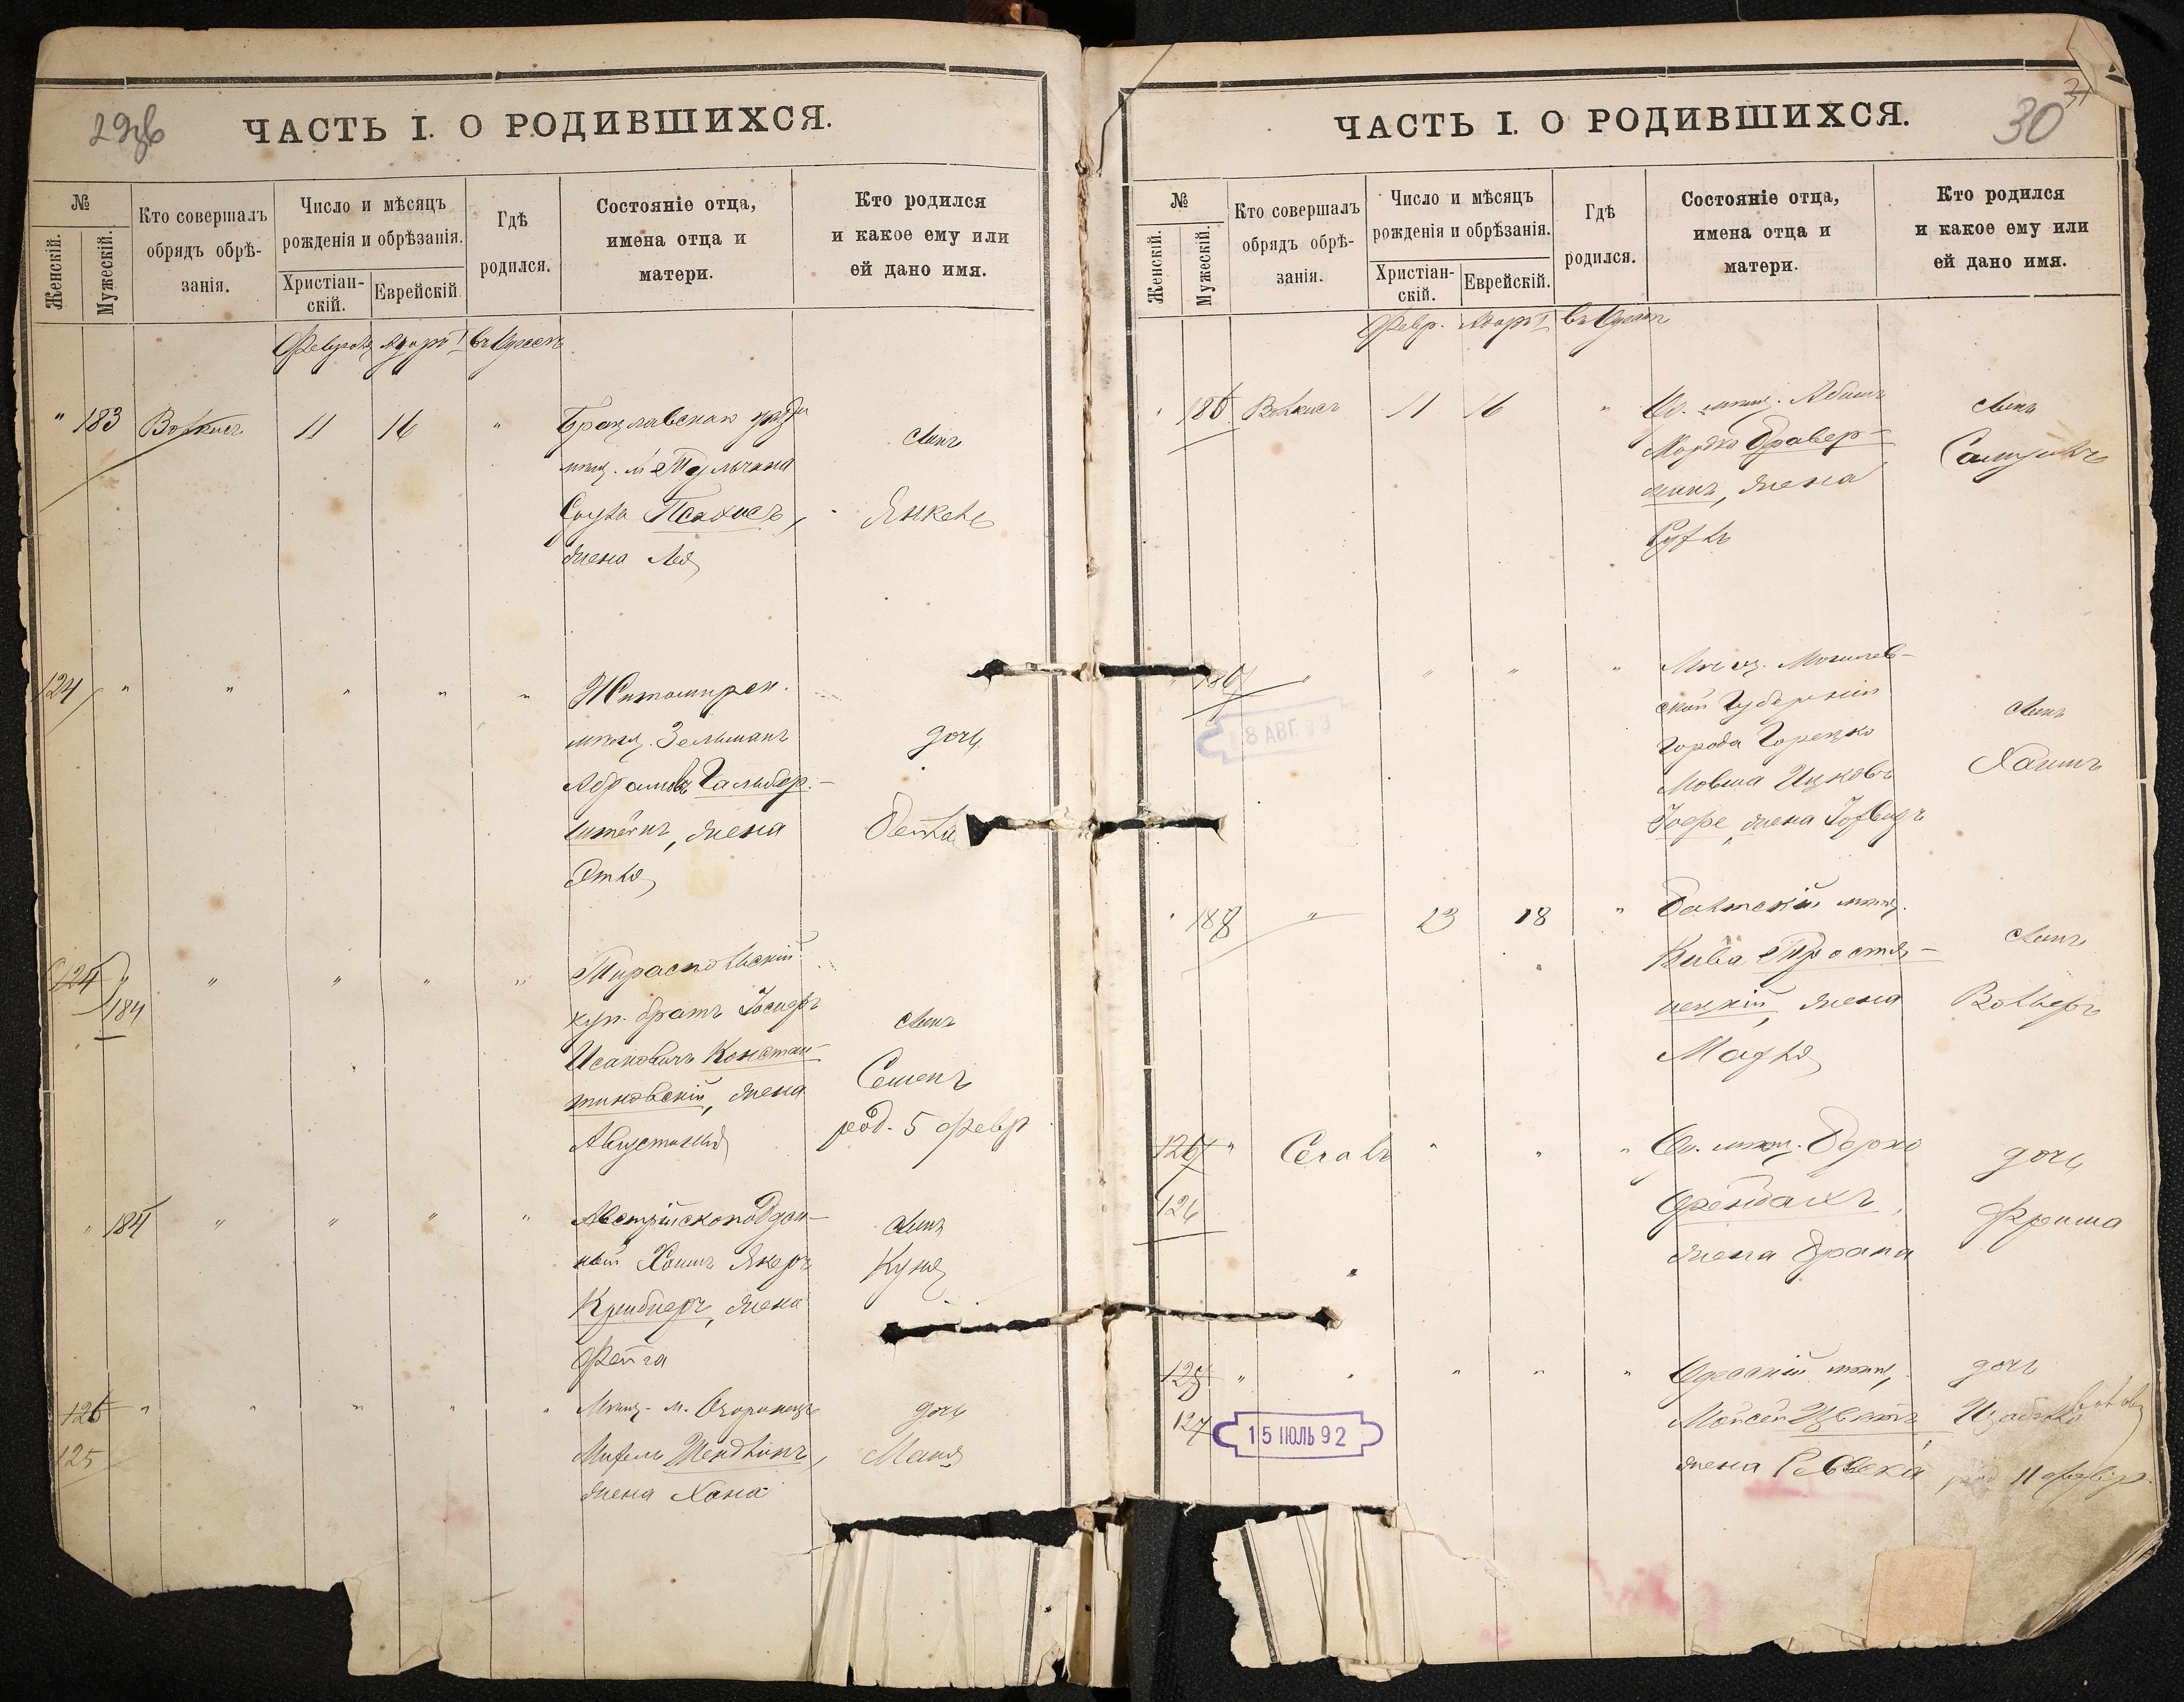 29об
ЧАСТЬ I. О РОДИВШИХСЯ.
№
Женскій.
Мужескій.
Кто совершалъ
обрядъ обрѣ-
занія.
Число и мѣсяцъ
рожденія и обрѣзанія.
Христіан-
скій.
Еврейскій.
Гдѣ
родился.
Состояніе отца,
имена отца и
матери.
Кто родился
и какое ему или
ей дано имя.
Февраля Адаръ I въ Одессѣ
" 183 11 16 "
мѣщ. м. Тульчина
жена Лея
сынъ
Янкель
124 " " " " "
Житомирск.
мѣщ. Зельманъ
Абрамовъ Гальбер-
штейнъ, жена
Этля
дочь
Бейла
124 " " " " "
184
Тираспольскій
куп. братъ Іосифъ
Исаковичъ Констан-
тиновскій, жена
Августина
сынъ
Семенъ
род. 5 февр
" 185 " " " "
Австрійскоподдан-
ный Хаимъ Якеръ
жена
Фейга
сынъ
Куня
126 " " " " "
125
Мѣщ. м.
жена Хана
дочь
Маня
30
31
ЧАСТЬ I. О РОДИВШИХСЯ.
№
Женскій.
Мужескій.
Кто совершалъ
обрядъ обрѣ-
занія.
Число и мѣсяцъ
рожденія и обрѣзанія.
Христіан-
скій.
Еврейскій.
Гдѣ
родился.
Состояніе отца,
имена отца и
матери.
Кто родился
и какое ему или
ей дано имя.
Февр. Адаръ I въ Одессѣ
" 186 11 16 "
Од. мѣщ. Абамъ
Мордко Бравер-
манъ, жена
Рухль
сынъ
Самуилъ
" 187 " " " "
8 АВГ. 93
Мѣщ. Могилев-
ской Губерніи
города Горецко
Мовша Ицковъ
Іофе, жена
сынъ
Хаимъ
" 188 " 13 18 "
Балтскій мѣщ.
Кива Тростя-
нецкій, жена
Малка
сынъ
Вольфъ
126 " Сегаль " " "
126
Од. мѣщ. Берко
жена Брана
дочь
Фрейма
128 " " " " "
127
15 ІЮЛЬ 92
Одесскій мѣщ.
Мойсей Цвейгъ,
жена Ревекка
дочь
род 11 февр.